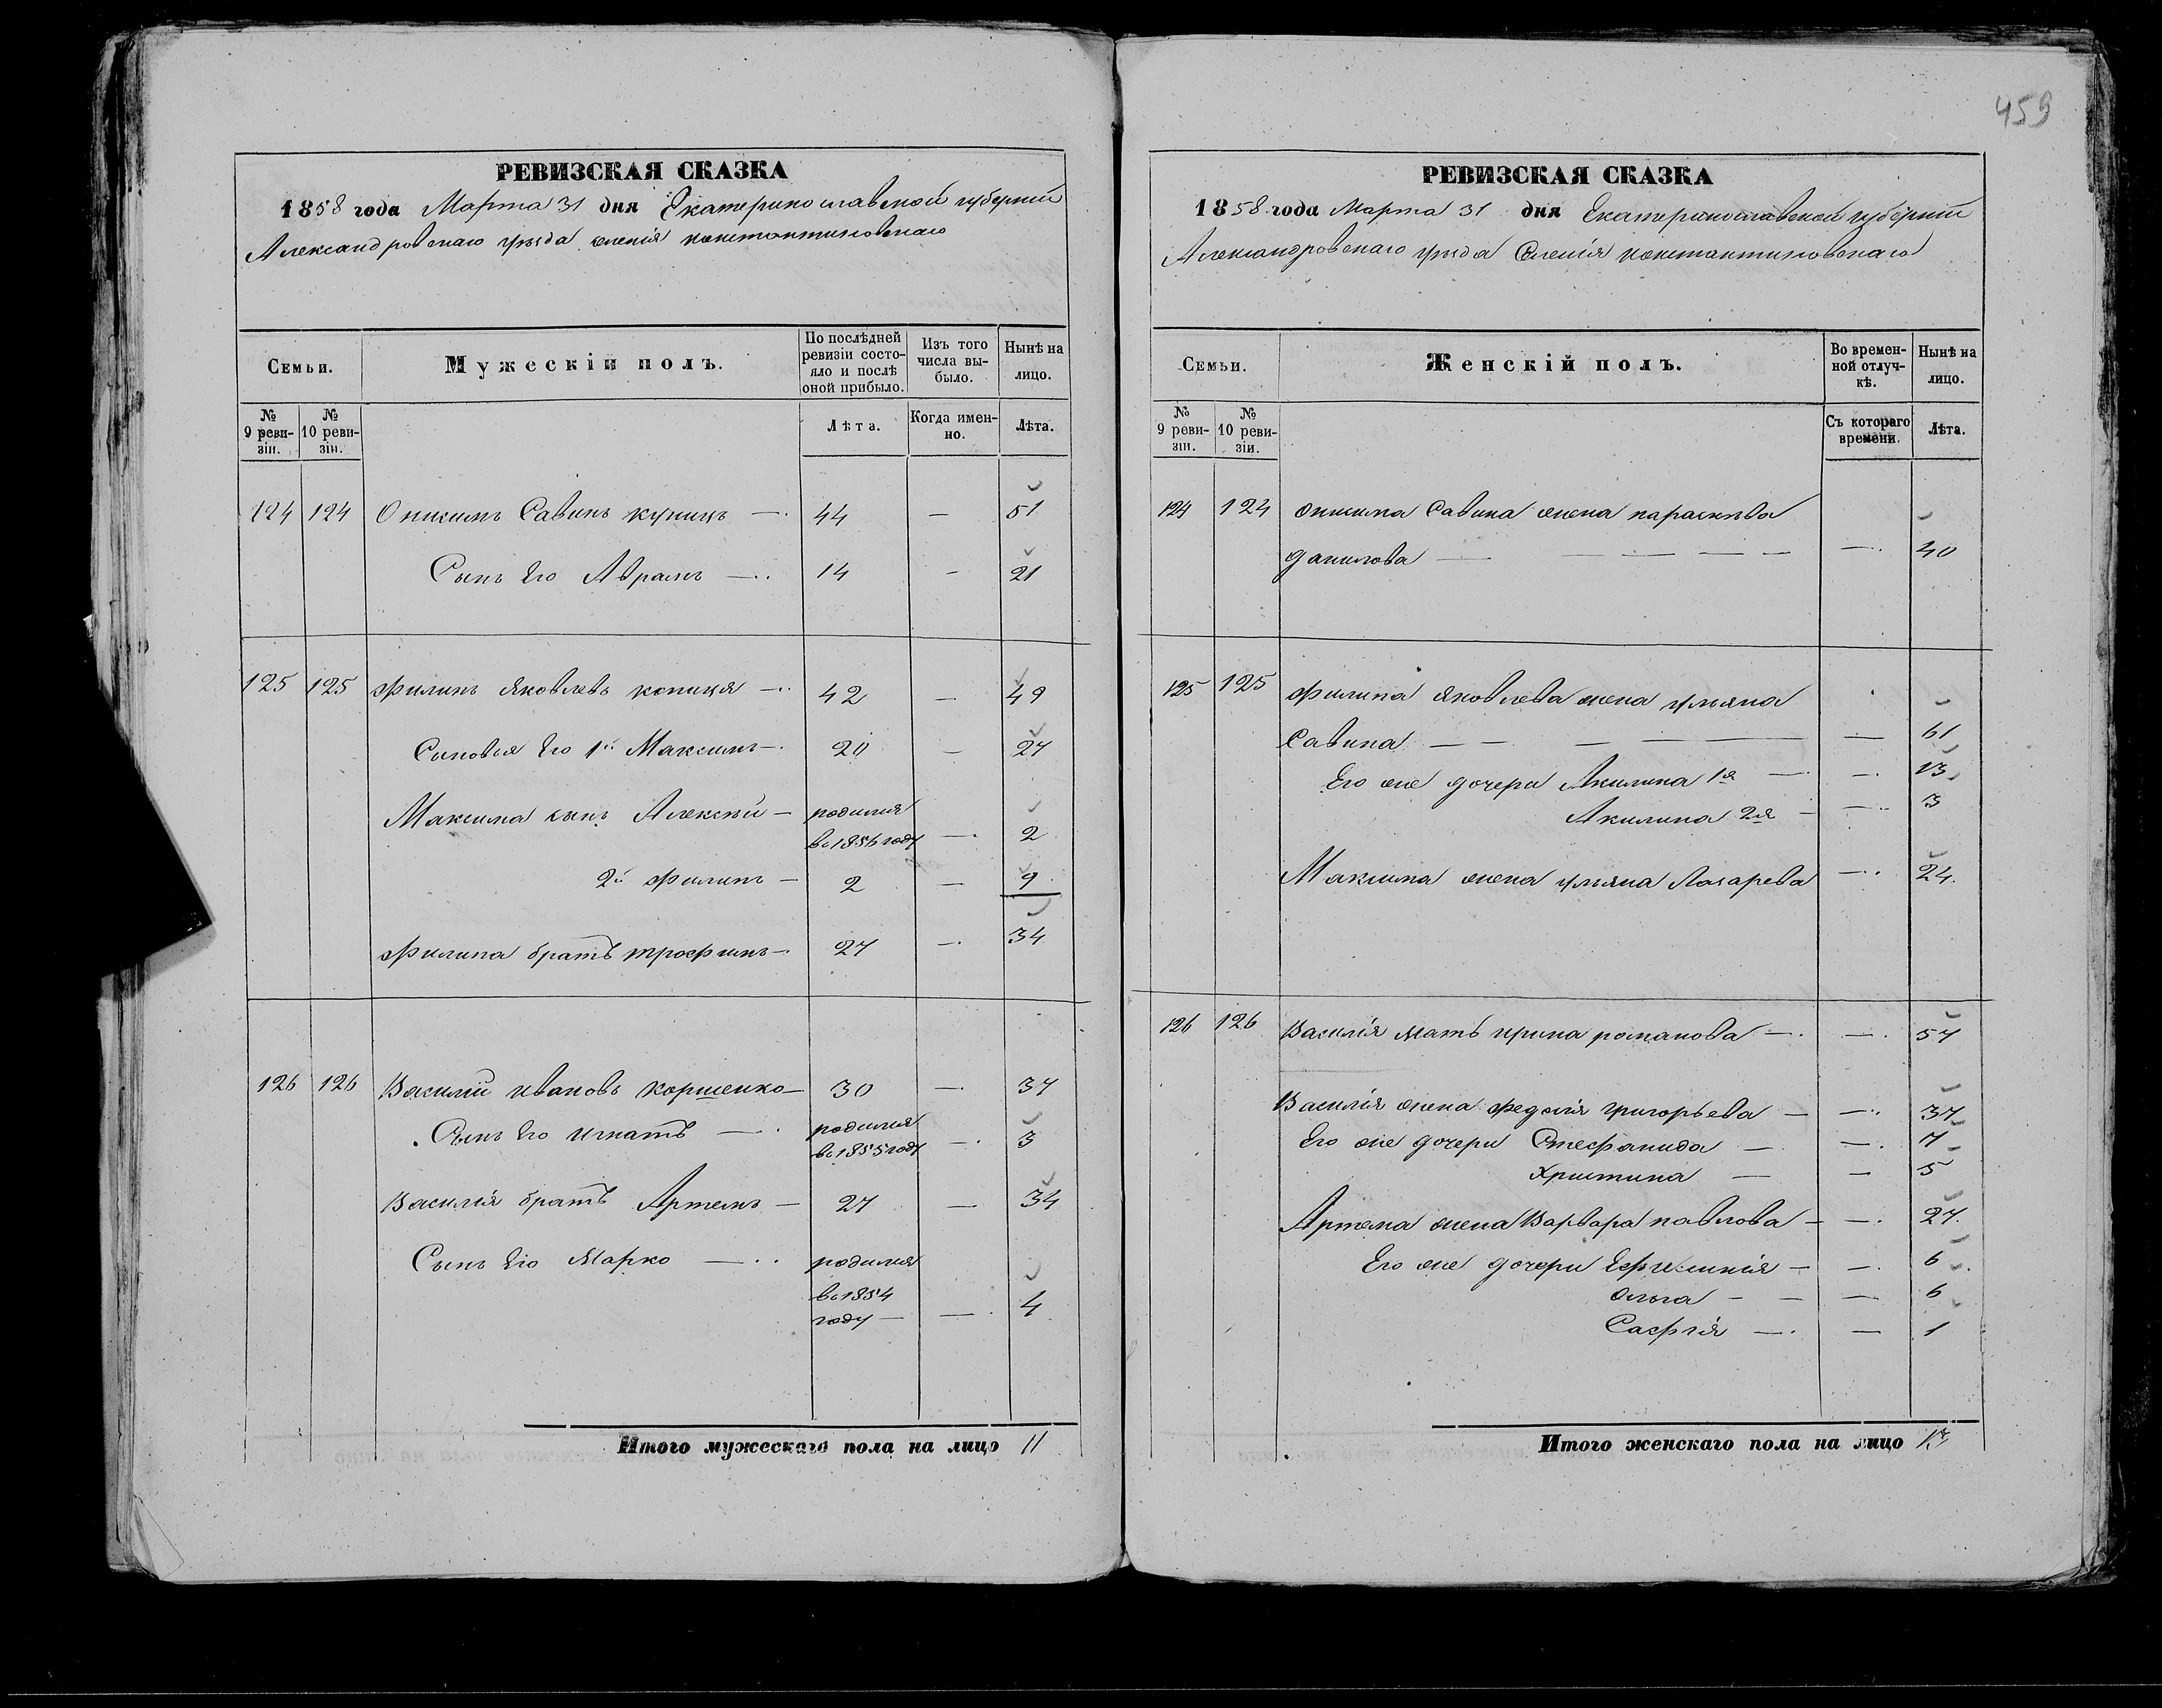 459
РЕВИЗСКАЯ СКАЗКА
1858 года Марта 31 дня Екатеринославской губерніи
Александровскаго уѣзда селенія константиновскаго
Семьи.
Мужескій полъ.
По послѣдней ревизіи состояло и послѣ оной прибыло.
Изъ того числа выбыло.
Нынѣ на лицо.
№ 9 ревизіи.
№ 10 ревизіи.
Лѣта.
Когда именно.
Лѣта.
124 124 Онисимъ Савинъ — 44 — 51
Сынъ Его Аврамъ — 14 — 21
125 125 Филипъ Яковлевъ копиця — 42 — 49
Сыновья Его 1й Максимъ — 20 — 27
Максима сынъ Алексѣй — родился
въ 1856 году — 2
2й Филипъ — 2 — 9
Филипа братъ трофимъ — 27 — 34
126 126 Василій ивановъ коршенко — 30 — 37
Сынъ Его игнатъ — родился
въ 1855 году — 3
Василія братъ Артемъ — 27 — 34
Сынъ Его Марко — родился
въ 1854
году — — 4
Итого мужескаго пола на лицо 11
РЕВИЗСКАЯ СКАЗКА
1858 года Марта 31 дня Екатеринославской губерніи
Александровскаго уѣзда Селенія константиновскаго
Семьи.
Женскій полъ.
Во временной отлучкѣ.
Нынѣ на лицо.
№ 9 ревизіи.
№ 10 ревизіи.
Съ котораго времени.
Лѣта.
124 124 Онисима Савина жена параскѣва
данилова — — — — — — 40
125 125 Филипа Яковлева жена ульяна
Савина — — — — — 61
Его же дочери Акилина 1я — — 13
Акилина 2я — — 3
Максима жена ульяна Лазарева — 24
126 126 Василія мать ирина романова — — 57
Василія жена григорьева — — 37
Его же дочери Стефанида — — 7
Христина — — 5
Артема жена Варвара павлова — — 27
Его же дочери — — 6
Ольга — — — 6
Сафія — — 1
Итого женскаго пола на лицо 13